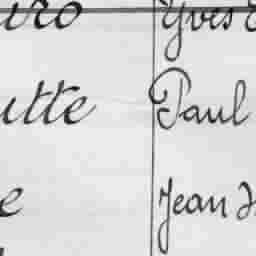 uro Yves
utte Paul
e Jean